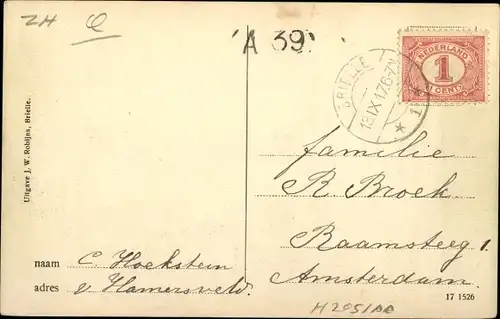 ZH
'A 39'
BRIELLE
13 IX 17.6-7N
1
NEDERLAND
1
1 CENT
familie
R Broek
Raamsteeg 1.
Amsterdam.
Uitgave J. W. Robijns, Brielle.
naam C. Hoekstein
adres v Hamersveld.
H2051AA
17 1526